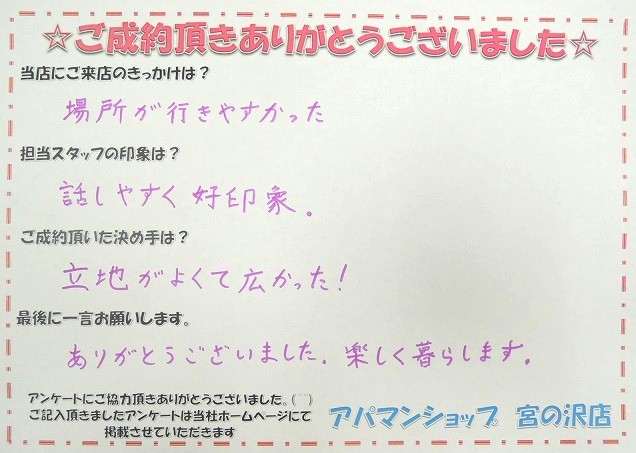 ☆ご成約頂きありがとうございました☆
当店にご来店のきっかけは？
場所が行きやすかった
担当スタッフの印象は？
話しやすく好印象。
ご成約頂いた決め手は？
立地がよくて広かった！
最後に一言お願いします。
ありがとうございました。楽しく暮らします。
アンケートにご協力頂きありがとうございました。(￣￣)
ご記入頂きましたアンケートは当社ホームページにて
掲載させていただきます
アパマンショップ 宮の沢店